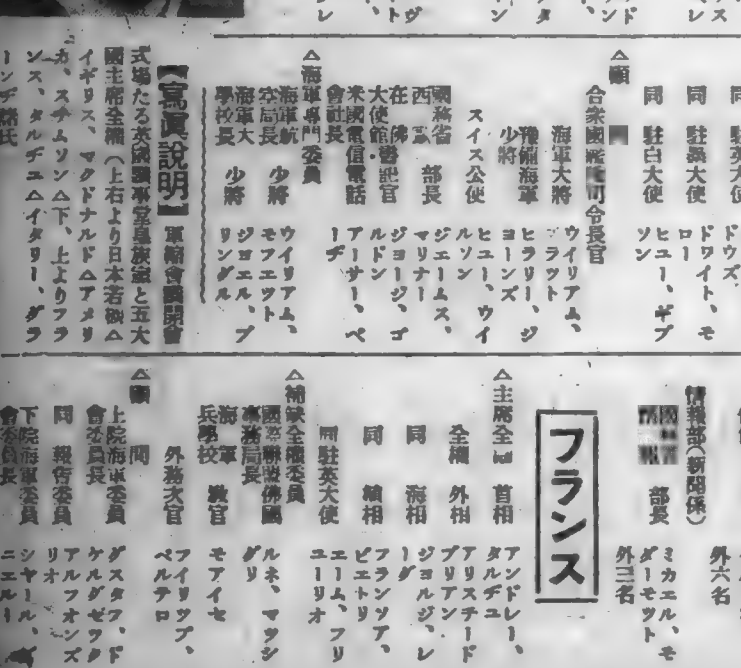 同 駐英大使
ドウズ、
同 駐墨大使
ドワイト、モ
ロー
同 駐白大使
ヒユー、ギブ
ソン
△顧問
合衆國艦隊司令長官
海軍大將
ウイリアム、
プラット
豫備海軍
少將
ヒラリー、ジ
ヨーンズ
スイス公使
ヒユー、ウイ
ルソン
國務省
西歐部長
ジエームス、
マリナー
在佛
大使館書記官
ジヨージ、ゴ
ルドン
米國電信電話
會社長
アーサー、ペ
ーヂ
△海軍專門委員
海軍航
空局長 少將
ウイリアム、
モフエツト
海軍大
學校長 少將
ジヨエル、プ
リングル
【寫眞說明】軍縮會議開會
式場たる英國議事堂皇族室と五大
國主席全權（上右より日本若槻△
イギリス、マクドナルド△アメリ
カ、スチムソン△下、上よりフラ
ンス、タルヂユ△イタリー、グラ
ーンヂ諸氏
情報部（新聞係）
部長
ミカエル、モ
ダーモツト
外三名
外六名
フランス
△主席全權 首相
アンドレー、
タルヂユ
全權 外相
アリスチード
ブリアン
同 海相
ジヨルジ、レ
ーグ
同 植相
フランソア、
ピエトリ
同 駐英大使
エーム、フリ
ユーリオ
△補缺全權委員
國際聯盟佛國
事務局長
ルネ、マツシ
グリ
海軍
兵學校 敎官
モアイセ
△顧問
外務次官
フイリツプ、
ベルテロ
上院海軍委員
會委員長
グスタフ、ド
ケルグゼツク
同 報告委員
アルフオンズ
リオ
下院海軍委員
會委員長
シヤール、
ニエルー